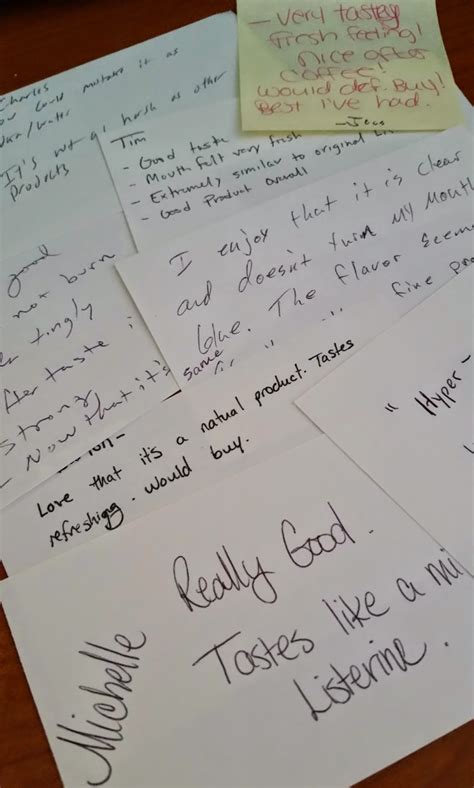 - Very tasty
fresh feeling!
nice after
coffee!
would def. Buy!
Best I've had.
- Jess
Charles
could mistake it as
water
It's not as harsh as other
products
Tim
- Good taste
- Mouth felt very fresh
- Extremely similar to original
- Good Product overall
I enjoy that it is clear
and doesn't turn my mouth
blue. The flavor
same
fine
good
not burn
tingly
After taste
Strong
- Now that it's
Love that it's a natual product. Tastes
refreshing. would buy.
" Hyper-
Michelle
Really Good.
Tastes like a
Listerine.